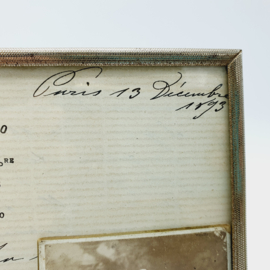 Paris 13 Décembre
1893
O
RE
O